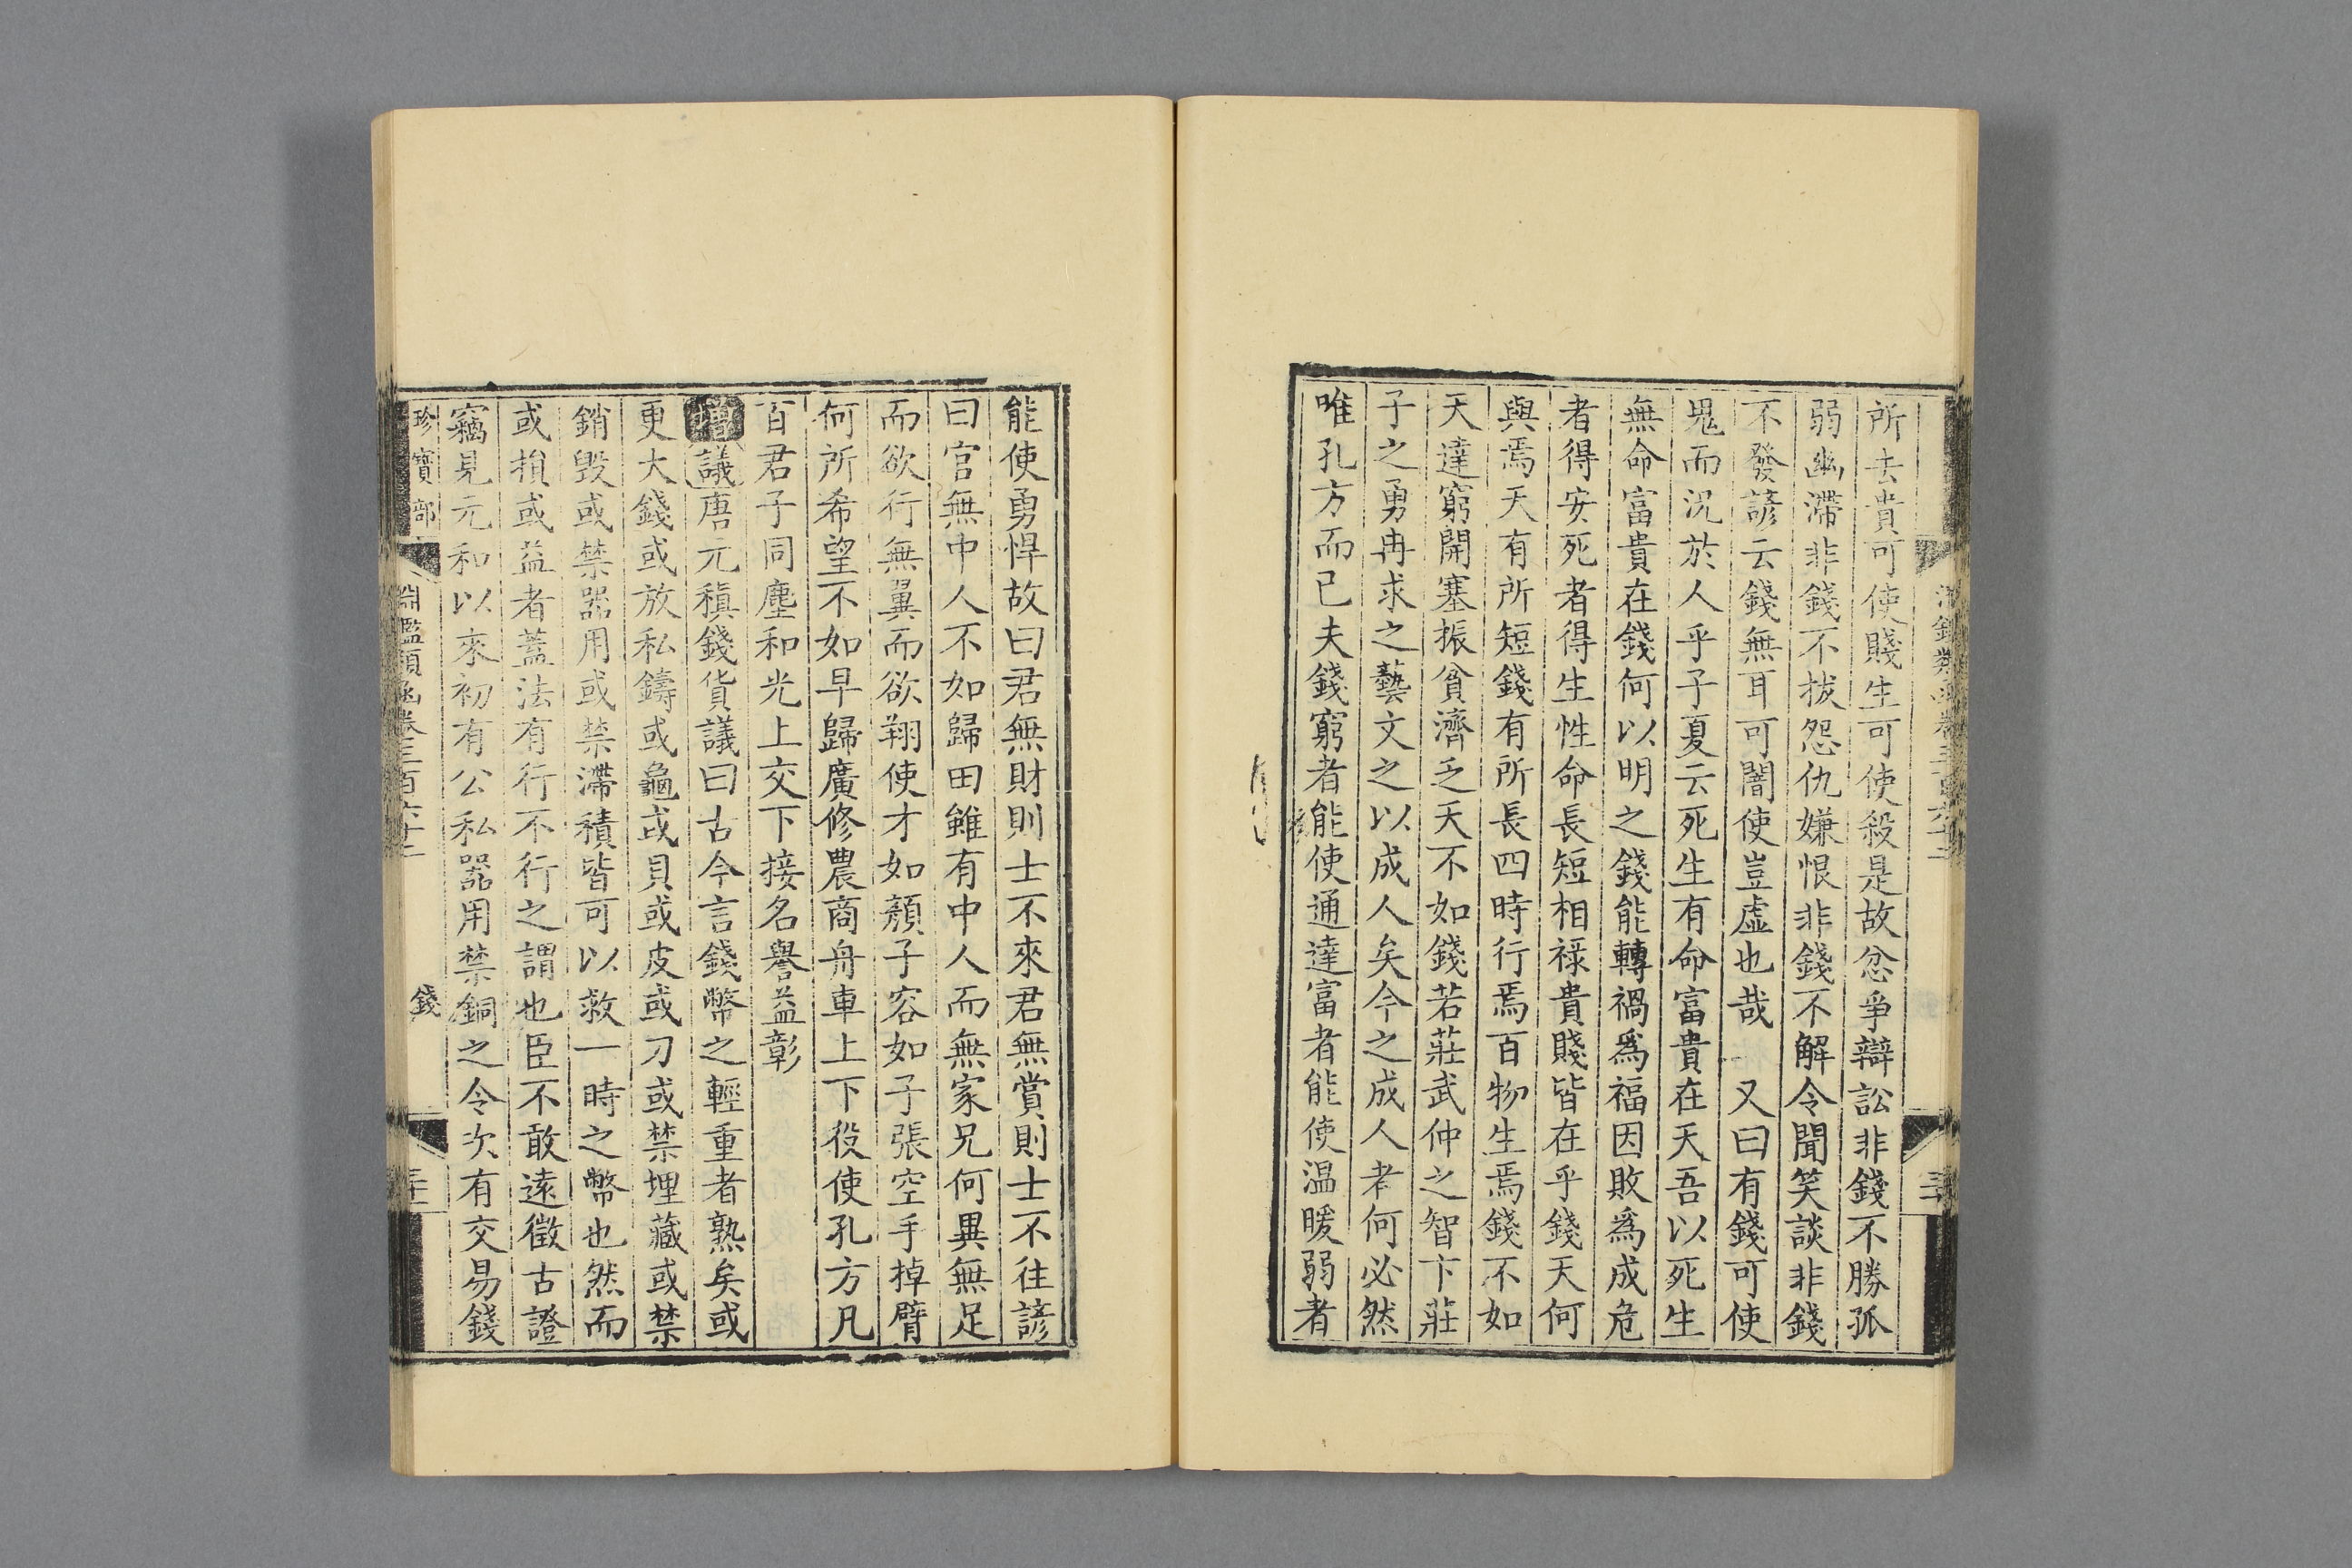 所去貴可使賤生可使殺是故忿爭辯訟非錢不勝孤
弱幽滯非錢不拔怨仇嫌恨非錢不解令聞笑談非錢
不發諺云錢無耳可闇使豈虛也哉　又曰有錢可使
鬼而况於人乎子夏云死生有命富貴在天吾以死生
無命富貴在錢何以明之錢能轉禍爲福因敗爲成危
者得安死者得生性命長短相祿貴賤皆在乎錢天何
與焉天有所短錢有所長四時行焉百物生焉錢不如
天達窮開塞振貧濟乏天不如錢若莊武仲之智卞莊
子之勇冉求之藝文之以成人矣今之成人者何必然
唯孔方而已夫錢窮者能使通達富者能使温暖弱者
能使勇悍故曰君無財則士不來君無賞則士不往諺
曰官無中人不如歸田雖有中人而無家兄何異無足
而欲行無翼而欲翔使才如顏子容如子張空手掉臂
何所希望不如早歸廣修農商舟車上下役使孔方凡
百君子同塵和光上交下接名譽益彰
增議唐元稹錢貨議曰古今言錢幣之輕重者熟矣或
更大錢或放私鑄或龜或貝或皮或刀或禁埋藏或禁
銷毁或禁器用或禁滯積皆可以救一時之幣也然而
或損或益者蓋法有行不行之謂也臣不敢遠徵古證
竊見元和以來初有公私器用禁銅之令次有交易錢
珍寶部
淵鑑類函卷三百六十二
錢